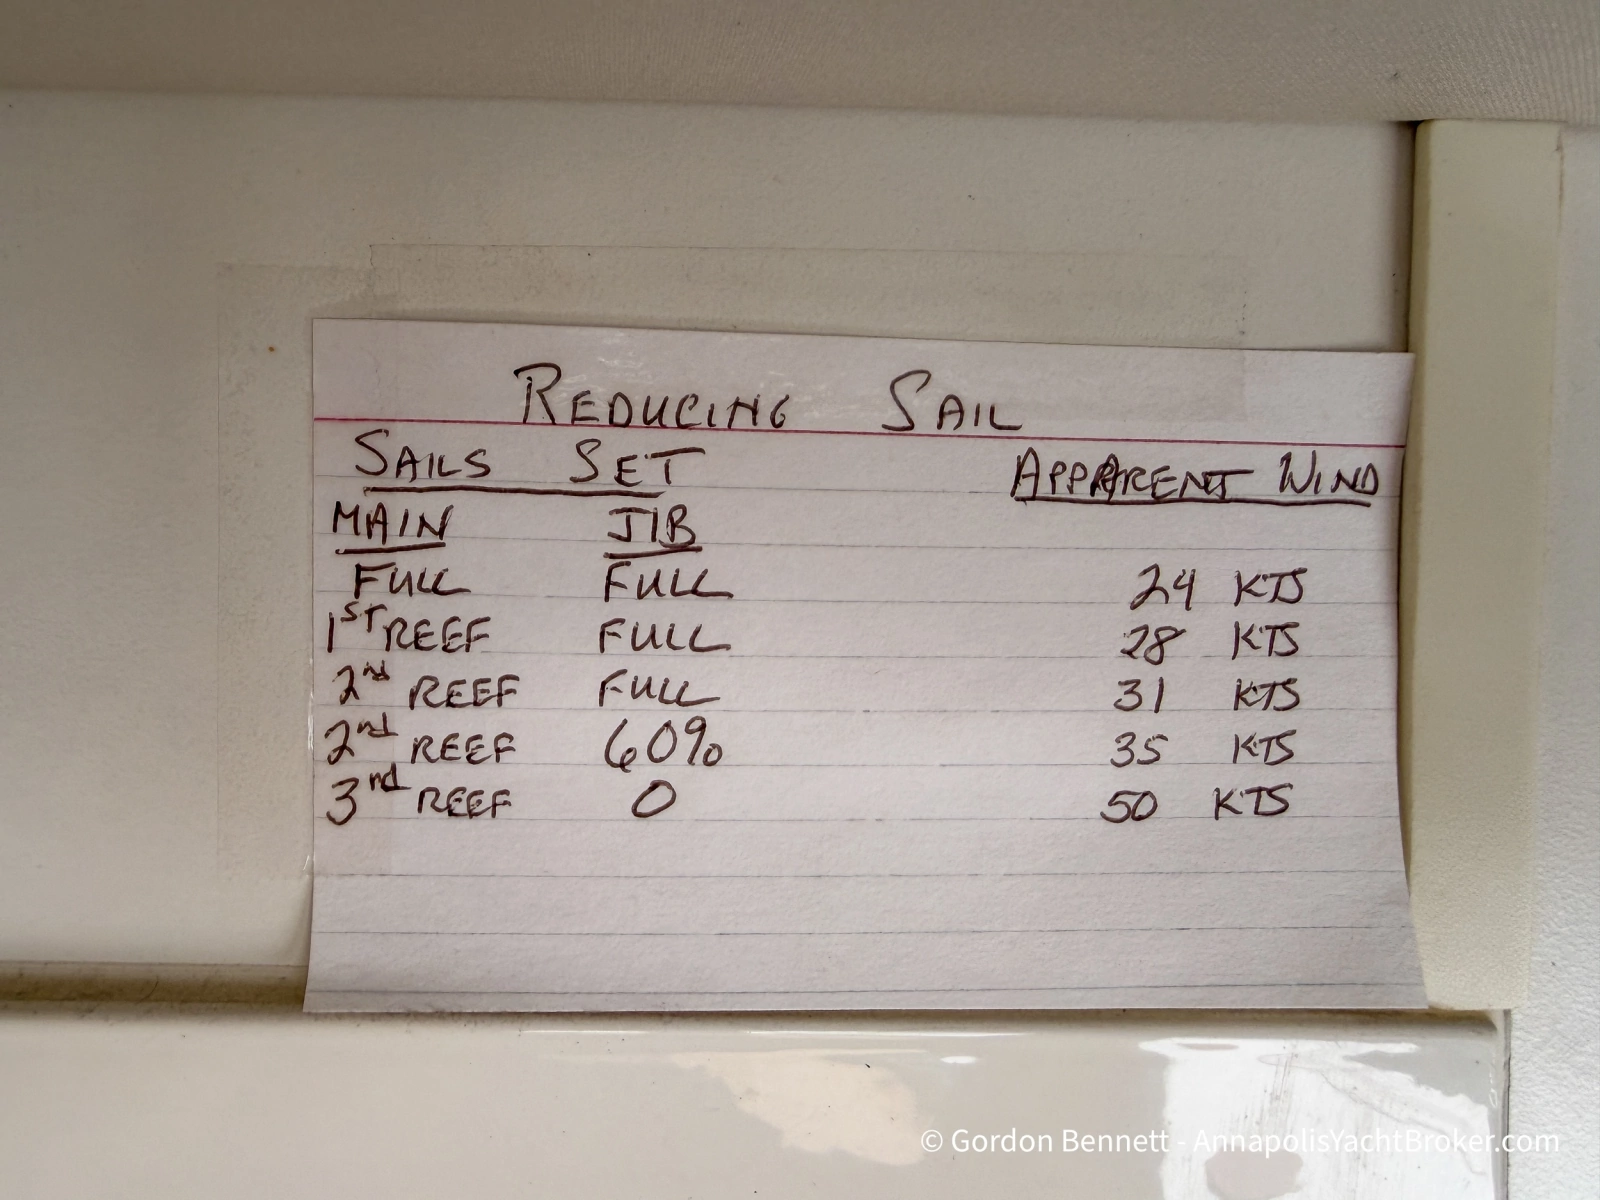 REDUCING SAIL
SAILS SET APPARENT WIND
MAIN JIB
FULL FULL 24 KTS
1ST REEF FULL 28 KTS
2nd REEF FULL 31 KTS
2nd REEF 60% 35 KTS
3rd REEF 0 50 KTS
© Gordon Bennett - AnnapolisYachtBroker.com